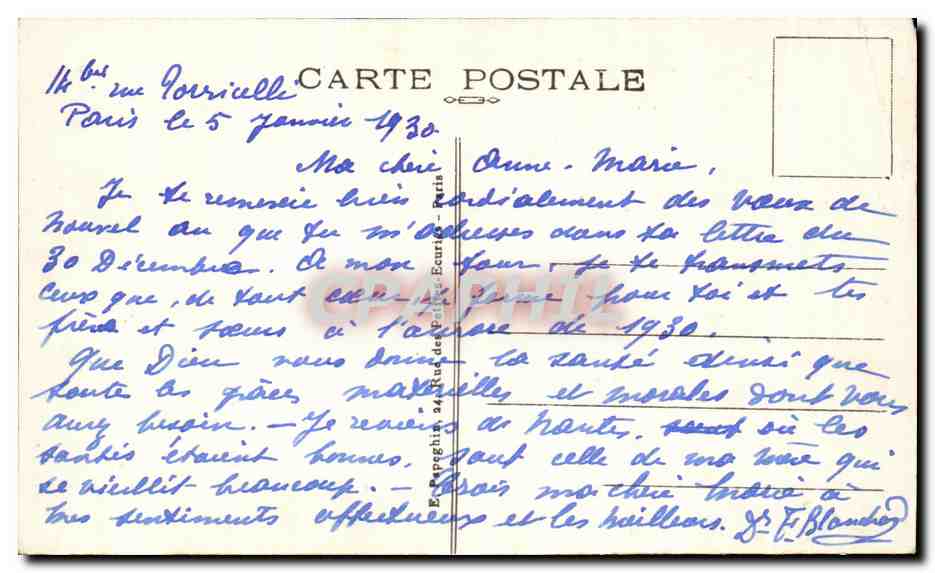 CARTE POSTALE
14 bis rue Torricelli
Paris le 5 Janvier 1930
Ma chère Anne-Marie,
Je te remercie bien cordialement des vœux de
nouvel an que tu m'adresses dans ta lettre du
30 Décembre. A mon tour, je te transmets
ceux que, de tout cœur, je forme pour toi et tes
frères et sœurs à l'aurore de 1930.
Que Dieu vous donne la santé ainsi que
toutes les grâces matérielles et morales dont vous
aurez besoin. — Je reviens de Nantes, où les
santés étaient bonnes, sauf celle de ma mère qui
se vieillit beaucoup. — Crois ma chère Marie à
mes sentiments affectueux et les meilleurs. Dr F.
E. Papeghin, 24, Rue des Petites-Ecuries - Paris
CPAPHIL